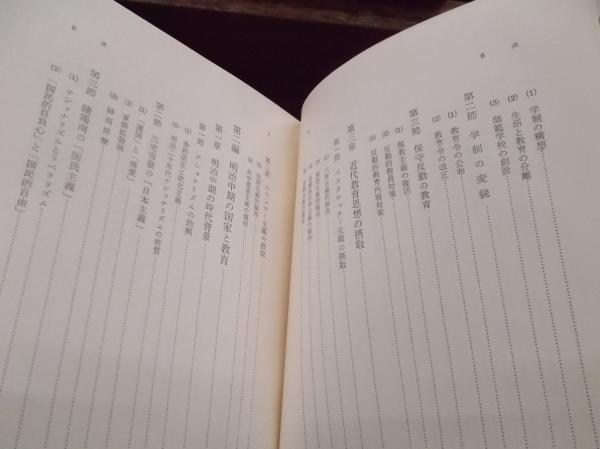 目次
(1) 学制の構想
(2) 生活と教育の分離
(3) 師範学校の創設
第二節 学制の変貌
(1) 教育令の公布
(2) 教育令の改正
第三節 保守反動の教育
(1) 儒教主義の復活
(2) 反動的教員対策
(3) 反動的教育内容対策
第三章 近代教育思想の摂取
第一節 ペスタロッチー主義の摂取
(1) 三育主義的傾向
目次
第二節 スペンサー主義の摂取
(1) 実利主義的傾向
(2) 科学主義的傾向
第二編 明治中期の国家と教育
第一章 明治中期の時代背景
第一節 ナショナリズムの勃興
(1) 条約改正と欧化主義
(2) 明治二十年代ナショナリズムの特質
第二節 三宅雪嶺の「日本主義」
(1) 「護国」と「博愛」
(2) 軍備拡張論
(3) 綱商摂撃
第三節 陸羯南の「国民主義」
(1) ナショナリズムとリベラリズム
(2) 「国民的自負心」と「国民的自由」